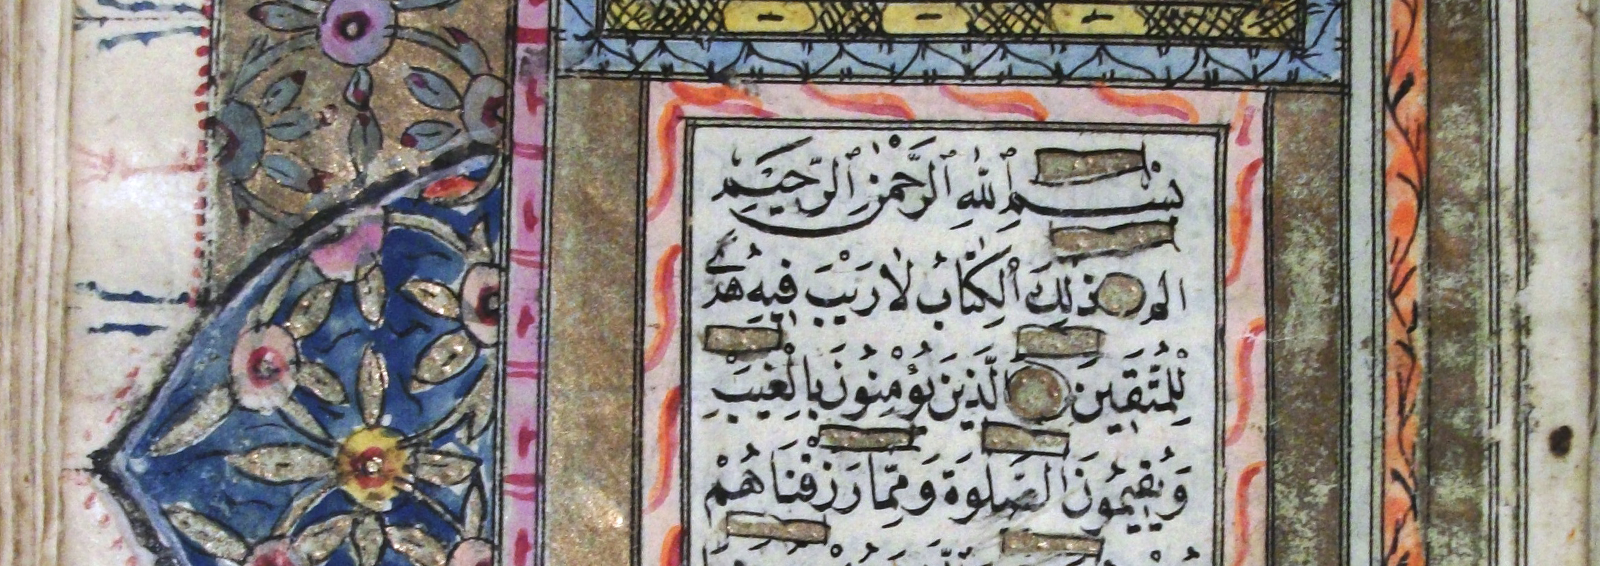 بِسْمِ ٱللّٰهِ ٱلرَّحْمٰنِ ٱلرَّحِيْمِ
الم ذٰلِكَ ٱلْكِتَابُ لَا رَيْبَ فِيهِ هُدًى
لِلْمُتَّقِينَ الَّذِينَ يُؤْمِنُونَ بِالْغَيْبِ
وَيُقِيمُونَ الصَّلٰوةَ وَمِمَّا رَزَقْنَاهُمْ